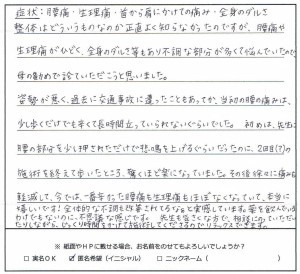 症状：腰痛・生理痛・首から肩にかけての痛み・全身のダルさ
整体はどういうものなのか正直よく知らなかったのですが、腰痛や
生理痛がひどく、全身のダルさ等もあり不調な部分が多くて悩んでいたので
母の勧めで診ていただこうと思いました。
姿勢が悪く、過去に交通事故に遭ったこともあってか、当初の腰の痛みは、
少し歩くだけでも辛くて長時間立っていられないぐらいでした。初めは、先生に
腰の部分を少し押されただけで悲鳴を上げるぐらいだったのに、2回目の
施術を終えて歩いたところ、驚くほど楽になっていました。その後徐々に痛みも
軽減して、今では一番辛かった腰痛も生理痛もほぼなくなっていて、本当に
嬉しいです！全体的な不調も改善されてるなと実感しています。薬を飲んでいる
わけでもないのに不思議な感じです。先生も気さくな方で、相談にのっていただい
たりしながら、じっくり時間をかけて施術して下さるのでリラックスできます。
※ 紙面やHPに載せる場合、お名前をのせてもよろしいでしょうか？
□ 実名OK ☑ 匿名希望（イニシャル） □ ニックネーム（ ）